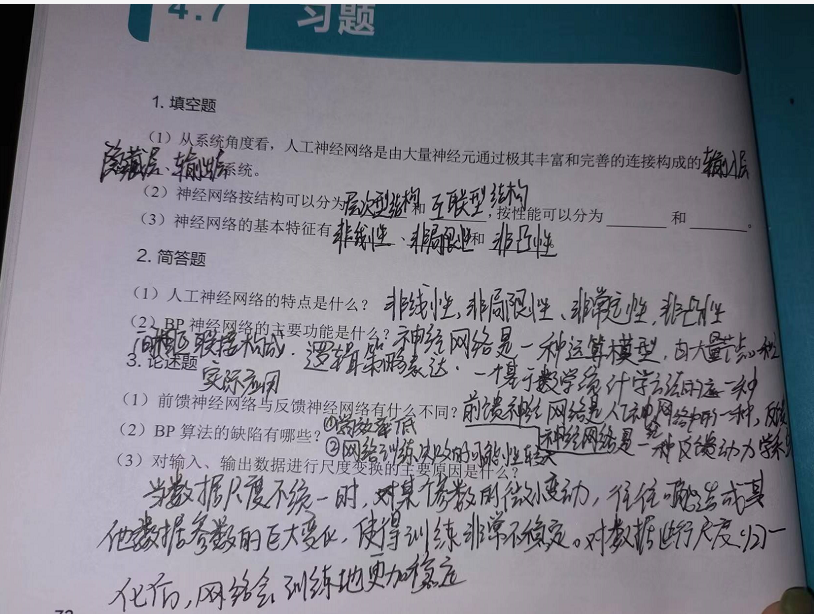 4.7 习题
1. 填空题
（1）从系统角度看，人工神经网络是由大量神经元通过极其丰富和完善的连接构成的 输入层
隐藏层、输出层 系统。
（2）神经网络按结构可以分为 层次型结构 和 互联型结构，按性能可以分为 ______ 和 ______。
（3）神经网络的基本特征有 非线性、非局限性 和 非凸性
2. 简答题
（1）人工神经网络的特点是什么？ 非线性，非局限性、非常定性，非凸性
（2）BP 神经网络的主要功能是什么？ 神经网络是一种运算模型，由大量节点
联接构成. 逻辑策略表达. 一个基于数学统计学方法的 一种
3. 论述题
实际应用
（1）前馈神经网络与反馈神经网络有什么不同？ 前馈神经网络是人工神经网络中的一种，反馈
神经网络是一种反馈动力学系统
（2）BP 算法的缺陷有哪些？ ①学效率低
②网络训练失败的可能性较大
（3）对输入、输出数据进行尺度变换的主要原因是什么？
当数据尺度不统一时，对某个参数的微小变动，往往 造成其
他数据参数的巨大变化，使得训练非常不稳定。对数据进行尺度归一
化后，网络会训练地更加稳定